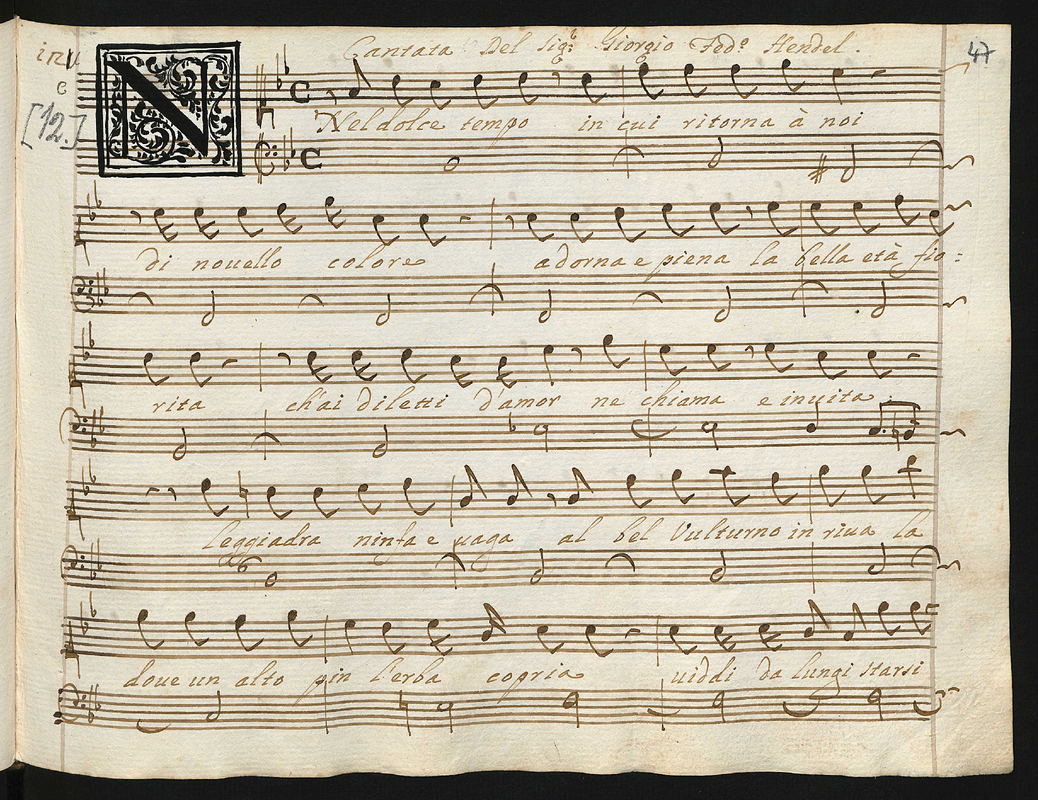 Cantata Del Sig.r Giorgio Fed.o Hendel.
47
[12.]
N
Nel dolce tempo in cui ritorna à noi
di nouello colore adorna e piena la bella età fio=
rita ch'ai diletti d'amor ne chiama e inuita
leggiadra ninfa e uaga al bel Vulturno in riua la
doue un alto pin l'erba copria uiddi da lungi starsi